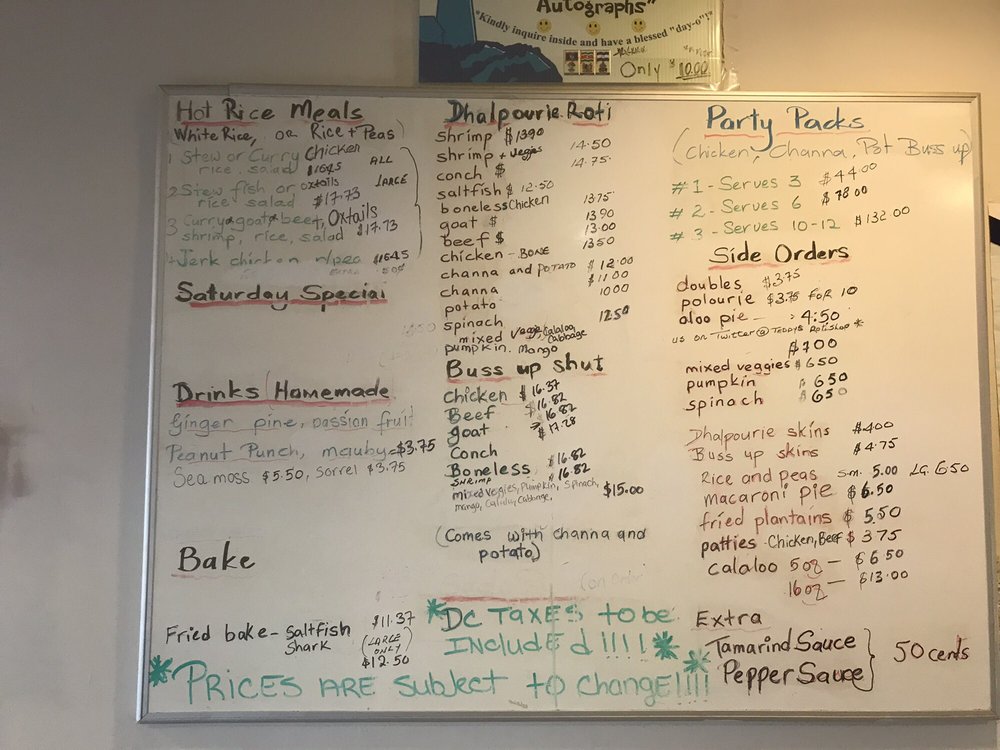 Autographs"
"Kindly inquire inside and have a blessed "day-o"!"
Only $10.00
Hot Rice Meals
(White Rice, or Rice + Peas)
1 Stew or Curry Chicken
rice, salad $1645
ALL
LARGE
2 Stew fish or oxtails
rice salad $17.73
3 Curry goat beef, Oxtails
shrimp, rice, salad $17.73
Jerk chicken $1645
50¢
Saturday Special
Drinks Homemade
Ginger pine, passion fruit
Peanut Punch, mauby - $3.75
Sea moss $5.50, Sorrel $3.75
Bake
Fried bake - Saltfish $11.37
Shark (LARGE ONLY)
$12.50
Dhalpourie Roti
shrimp $1390
shrimp + veggies 14.50
conch $ 14.75
saltfish $ 12.50
boneless chicken 1375
goat $ 1390
beef $ 13.00
chicken - BONE 1350
channa and POTATO $12.00
channa $11.00
potato 1000
spinach 1250
mixed veggie, Calaloo, Cabbage
pumpkin. mango
Buss up shut
chicken $16.37
Beef 16.82
goat 16.82
Conch $17.28
Boneless $16.82
SHRIMP 16.82
mixed veggies, Pumpkin, Spinach, $15.00
mango, Calalu, Cabbage,
(Comes with channa and
potato)
Party Packs
(Chicken, Channa, Pot Buss up)
#1 - Serves 3 $44.00
#2 - Serves 6 $78.00
#3 - Serves 10-12 $132.00
Side Orders
doubles $3.75
polourie $3.75 FOR 10
aloo pie - 4:50
us on Twitter@
$700
mixed veggies $650
pumpkin $650
spinach $650
Dhalpourie skins $400
Buss up skins $4.75
Rice and peas sm. 5.00 LG. 650
macaroni pie $6.50
fried plantains $5.50
patties - Chicken, Beef $375
calaloo 5oz - $6.50
16oz - $13.00
Extra
Tamarind Sauce
Pepper Sauce
50 cents
*DC TAXES to be
INCLUDEd!!!!*
*PRICES ARE subject to Change!!!!*